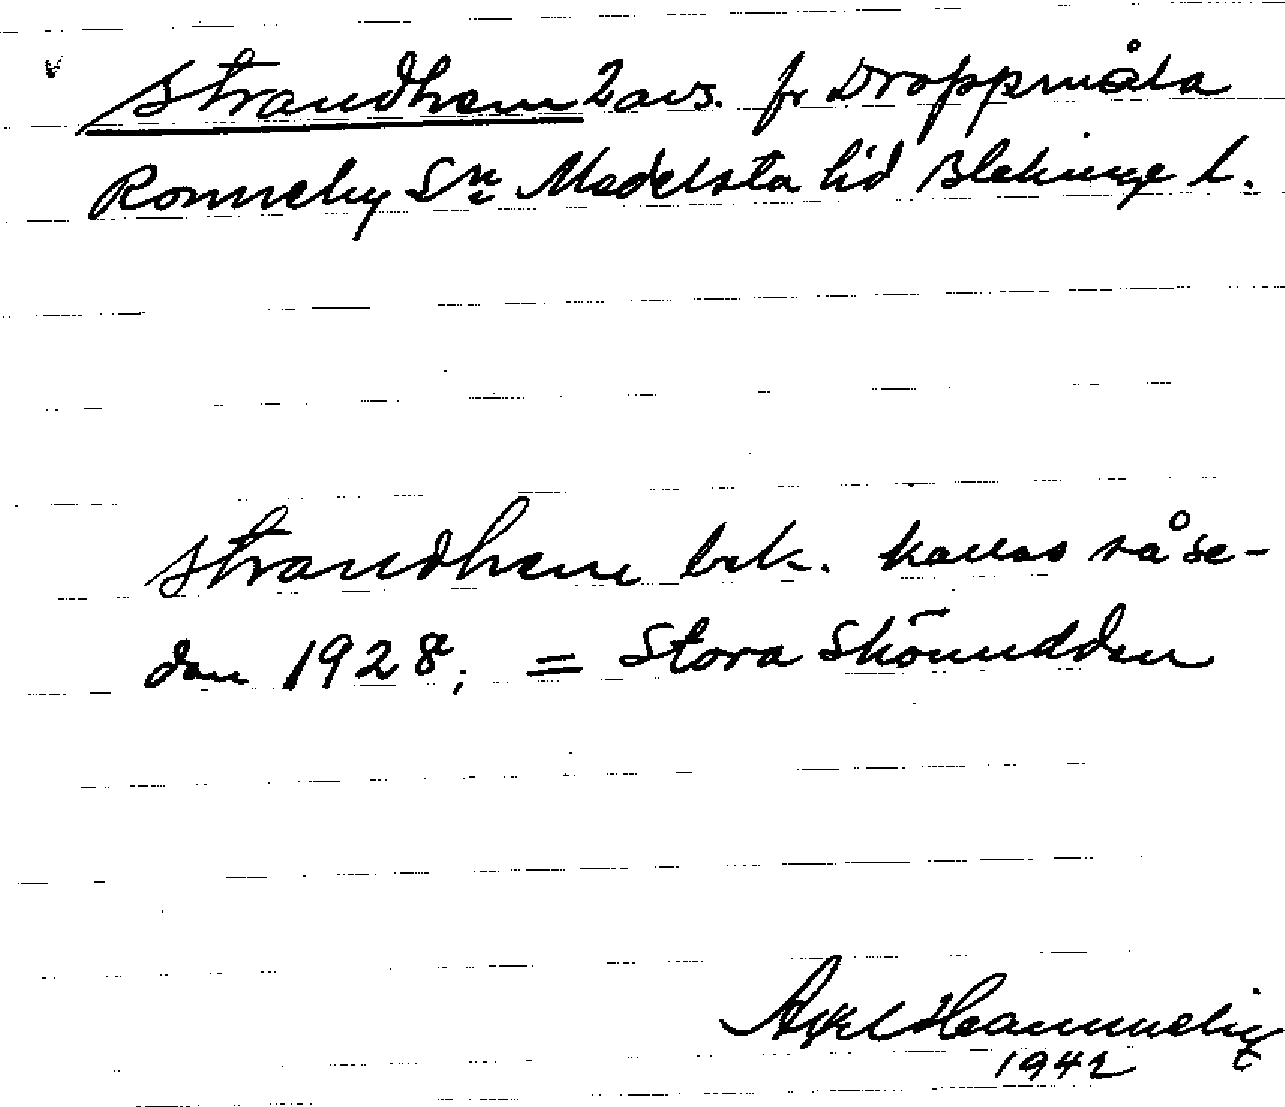 v Strandhem 2 avs. fr Droppmåla
Ronneby Sn Medelsta hd Blekinge l.
Strandhem brk. kallas så se-
dan 1928, = Stora Skönudden
Axel
1942